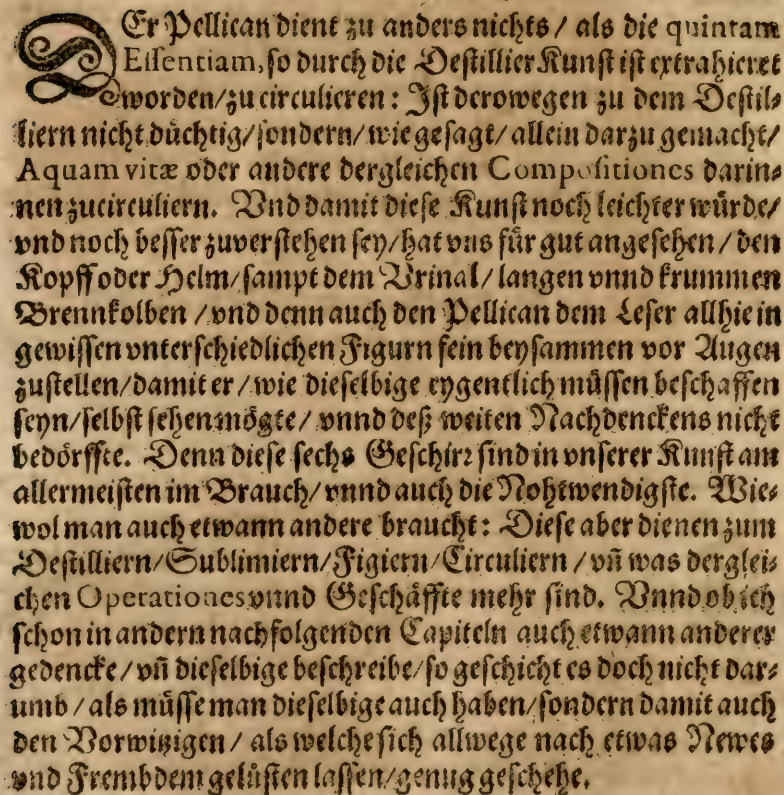 DEr Pellican dient zu anders nichts / als die quintam
Essentiam, so durch die Destillier Kunst ist extrahieret
worden / zu circulieren: Ist derowegen zu dem Destil-
liern nicht düchtig / sondern / wie gesagt / allein darzu gemacht /
Aquam vitæ oder andere dergleichen Compositiones darin-
nen zu circuliern. Vnd damit diese Kunst noch leichter würde /
vnd noch besser zuverstehen sey / hat vns für gut angesehen / den
Kopff oder Helm / sampt dem Vrinal / langen vnnd krummen
Brennkolben / vnd denn auch den Pellican dem Leser allhie in
gewissen vnterschiedlichen Figurn fein beysammen vor Augen
zustellen / damit er / wie dieselbige eygentlich müssen beschaffen
seyn / selbst sehen mögte / vnnd deß weiten Nachdenckens nicht
bedörffte. Denn diese sechs Geschirr sind in vnserer Kunst am
allermeisten im Brauch / vnnd auch die Nohtwendigste. Wie-
wol man auch etwann andere braucht: Diese aber dienen zum
Destilliern / Sublimiern / Figiern / Circuliern / vñ was derglei-
chen Operationes vnnd Geschäffte mehr sind. Vnnd ob ich
schon in andern nachfolgenden Capiteln auch etwann anderer
gedencke / vñ dieselbige beschreibe / so geschicht es doch nicht dar-
umb / als müsse man dieselbige auch haben / sondern damit auch
den Vorwitzigen / als welche sich allwege nach etwas Newes
vnd Frembdem gelüsten lassen / genug geschehe.